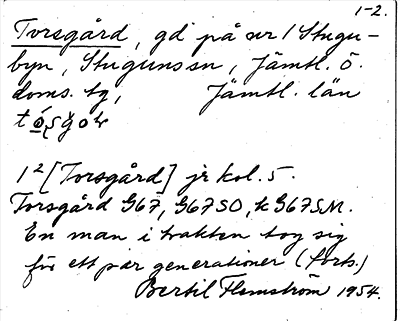 1-2.
Torsgård, gd på nr 1 Stugu-
byn, Stuguns sn, Jämtl. ö.
doms. tg, Jämtl. län
1²[Torsgård] jr kol. 5.
Torsgård G67, G67SO, k G67SM.
En man i trakten tog sig
för ett par generationer (forts.)
Bertil Flemström 1954.